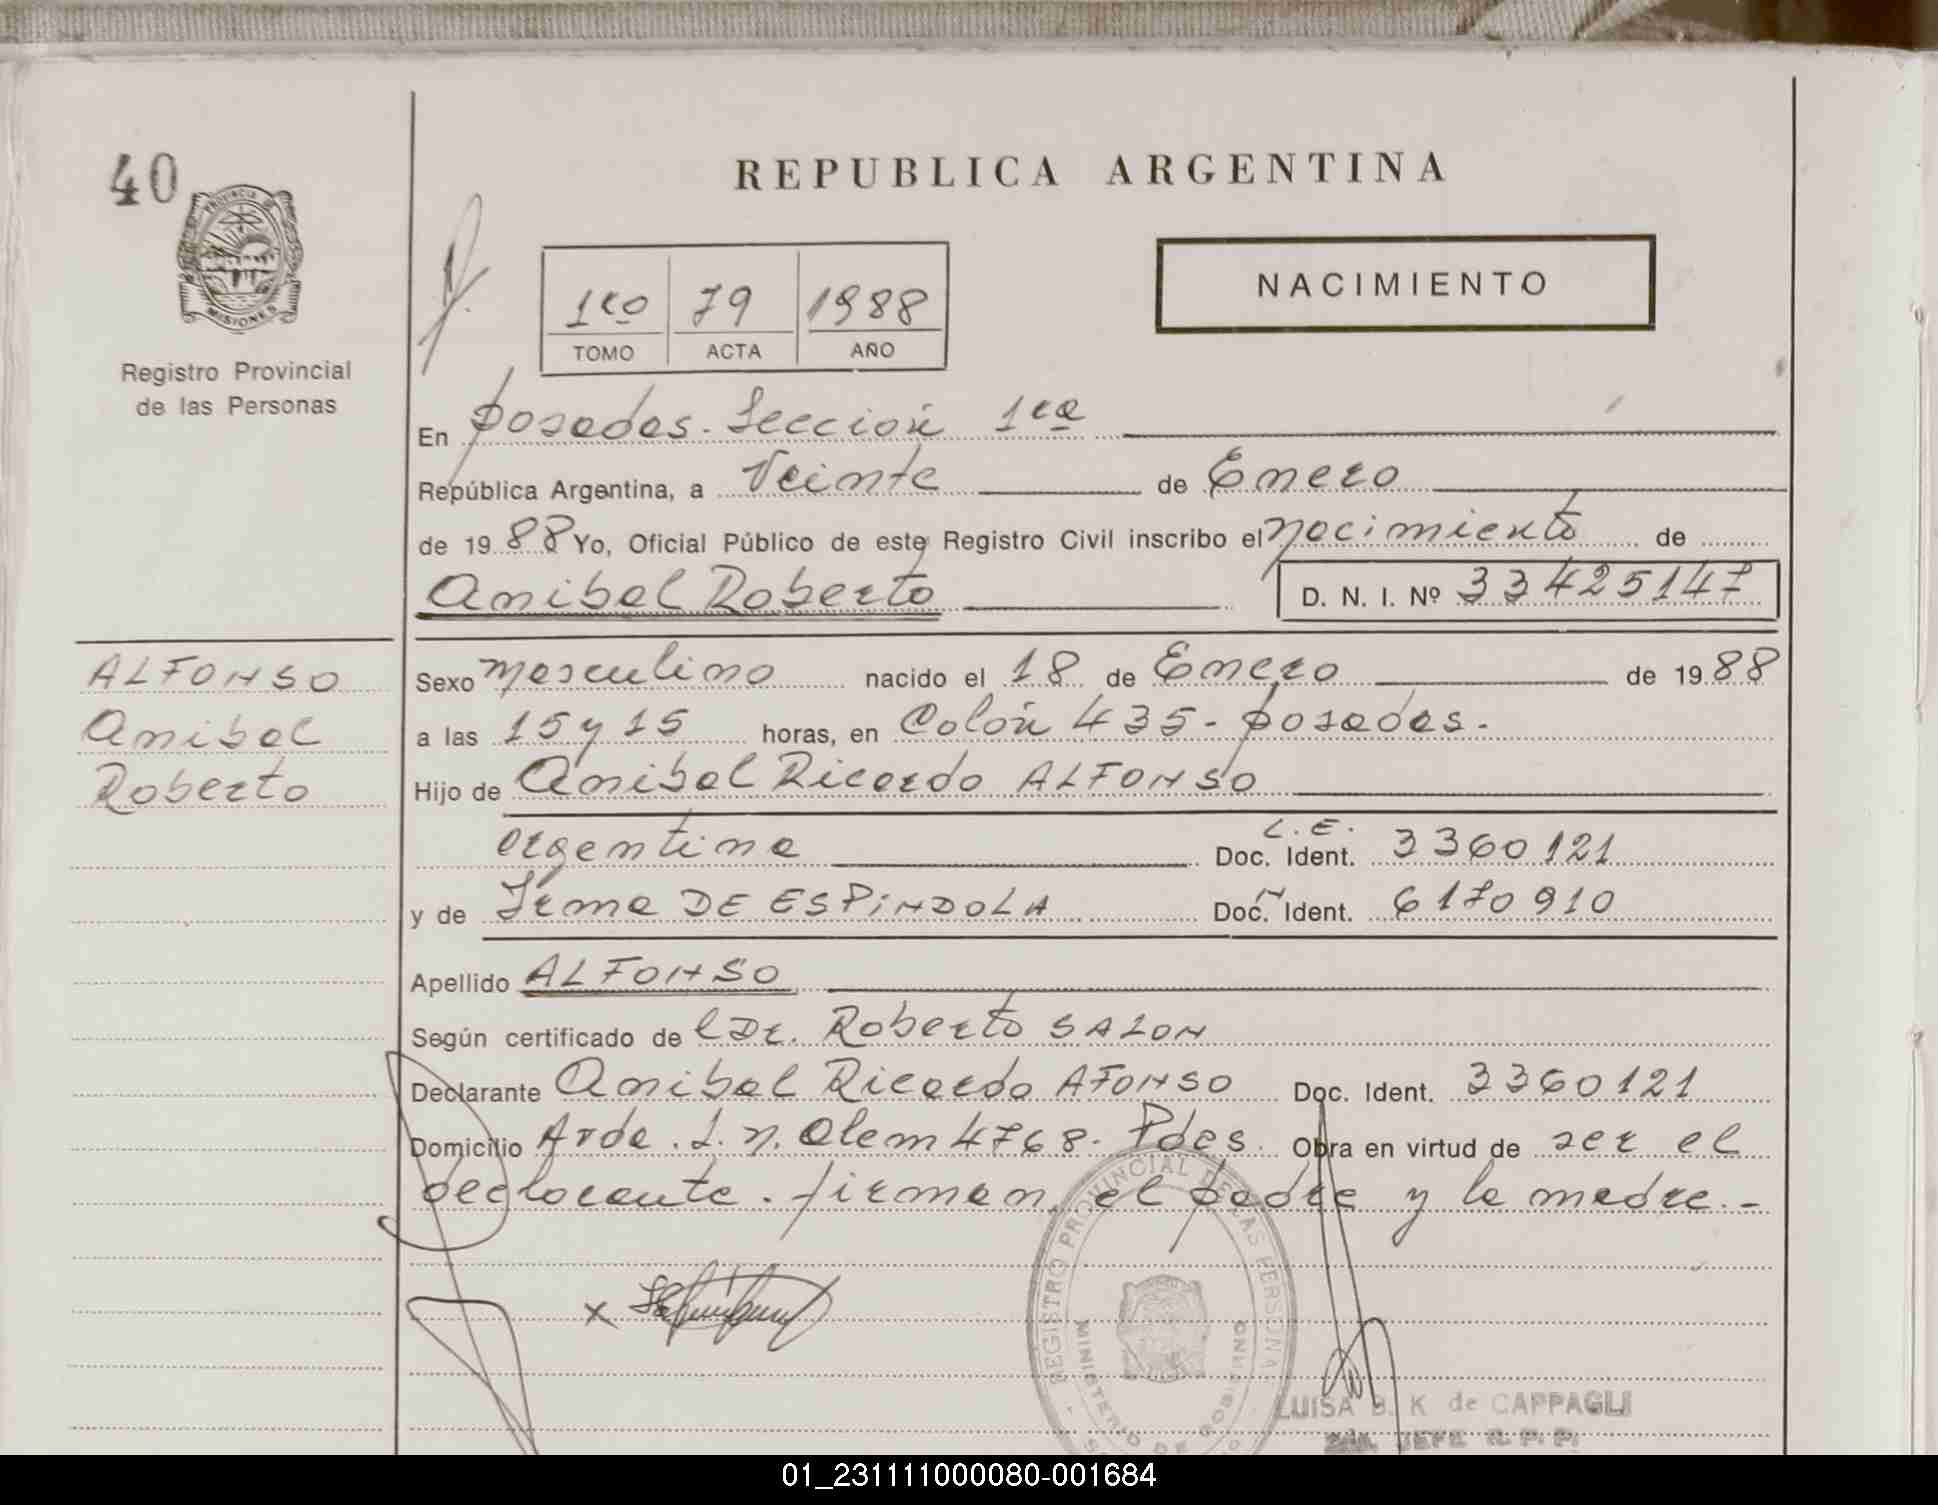 40
REPUBLICA ARGENTINA
PROVINCIA DE
MISIONES
Registro Provincial
de las Personas
1ro 79 1988
TOMO ACTA AÑO
NACIMIENTO
En posadas. Sección 1ra
República Argentina, a Veinte de Enero
de 1988 Yo, Oficial Público de este Registro Civil inscribo el nacimiento de
Anibal Roberto D. N. I. Nº 33425147
ALFONSO
Anibal
Roberto
Sexo masculino nacido el 18 de Enero de 1988
a las 15 y 15 horas, en Colón 435 - posadas.
Hijo de Anibal Ricardo ALFONSO
argentina L.E. Doc. Ident. 3360121
y de Irma DE ESPINDOLA Doc. Ident. 6170910
Apellido ALFONSO
Según certificado del Dr. Roberto SALON
Declarante Anibal Ricardo AFONSO Doc. Ident. 3360121
Domicilio Avda. L. N. Alem 4768. Pdas. Obra en virtud de ser el
declarante. firman el padre y la madre.-
x
REGISTRO PROVINCIAL DE LAS PERSONAS
MINISTERIO DE GOBIERNO
LUISA B. K de CAPPAGLI
JEFE R. P. P.
01_231111000080-001684